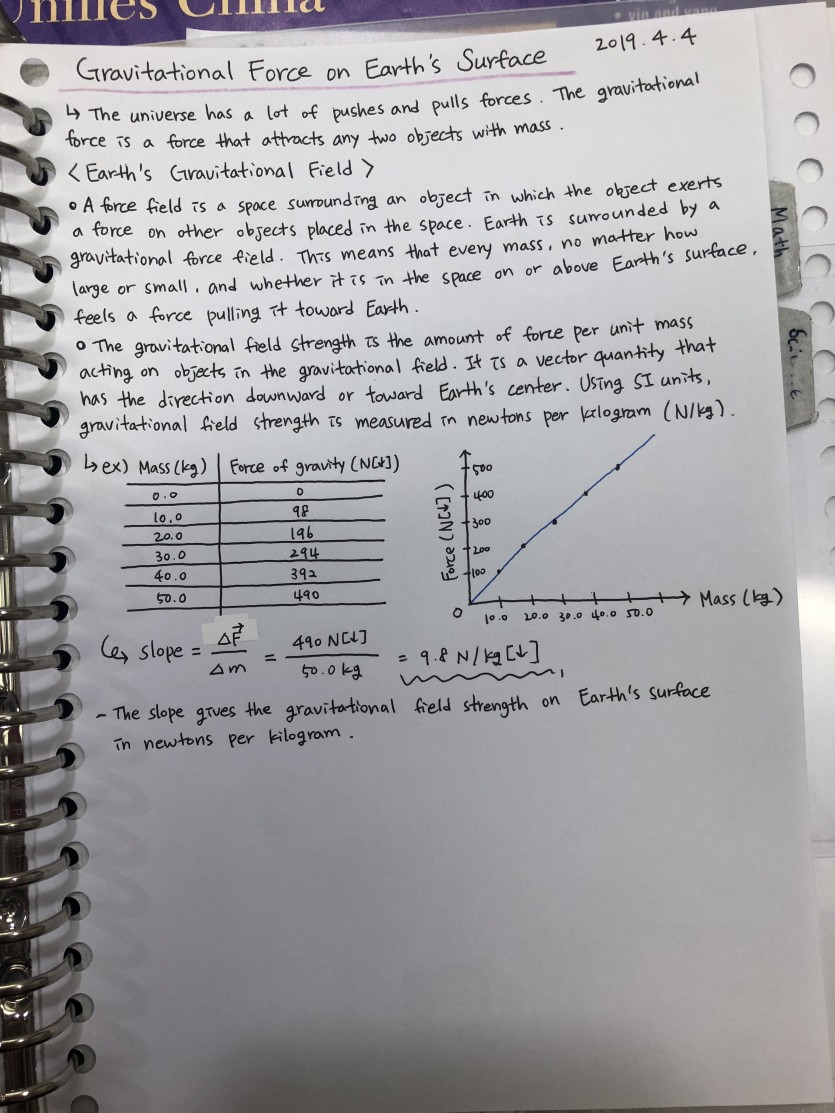 nifies China
• yin and yang
Gravitational Force on Earth's Surface 2019.4.4
↳ The universe has a lot of pushes and pulls forces. The gravitational
force is a force that attracts any two objects with mass.
<Earth's Gravitational Field>
• A force field is a space surrounding an object in which the object exerts
a force on other objects placed in the space. Earth is surrounded by a
gravitational force field. This means that every mass, no matter how
large or small, and whether it is in the space on or above Earth's surface,
feels a force pulling it toward Earth.
• The gravitational field strength is the amount of force per unit mass
acting on objects in the gravitational field. It is a vector quantity that
has the direction downward or toward Earth's center. Using SI units,
gravitational field strength is measured in newtons per kilogram (N/kg).
↳ ex) Mass (kg) Force of gravity (N[↓])
0.0 0
10.0 98
20.0 196
30.0 294
40.0 392
50.0 490
Force (N[↓])
500
400
300
200
100
0
10.0 20.0 30.0 40.0 50.0
Mass (kg)
↳ slope = ΔF⃗/Δm = 490 N[↓]/50.0 kg = 9.8 N/kg[↓]
- The slope gives the gravitational field strength on Earth's surface
in newtons per kilogram.
Math